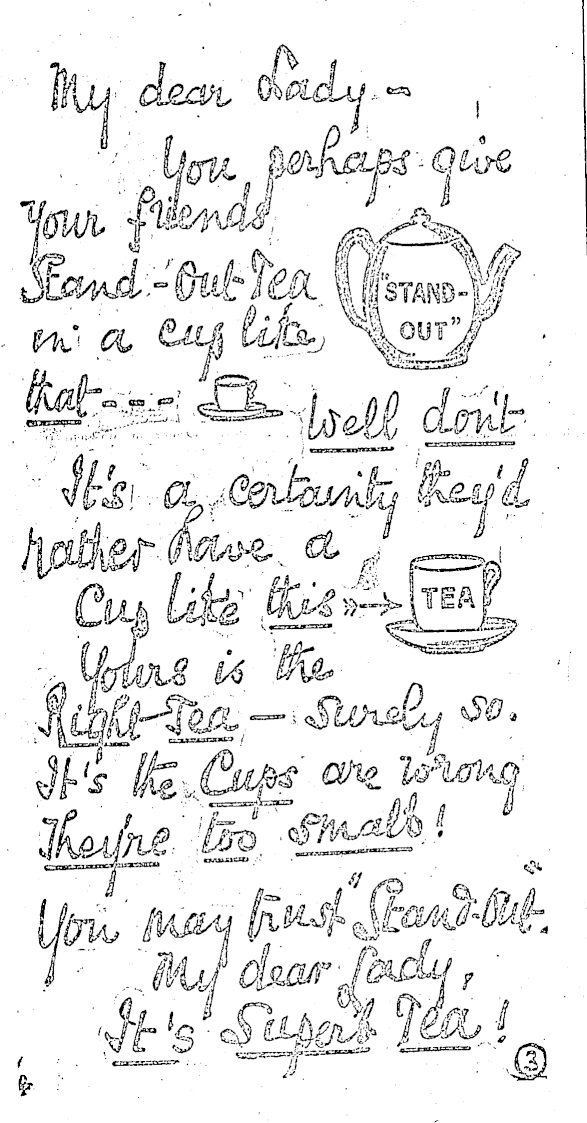 My dear Lady -
You perhaps give
your friends
Stand-Out-Tea
in a cup like
that - - -
"STAND-
OUT"
Well don't
It's a certainity they'd
rather have a
Cup like this
TEA
Yours is the
Right-Tea — surely so.
It's the Cups are wrong
They're too small!
You may trust "Stand-Out".
My dear Lady,
It's Superb Tea!
3